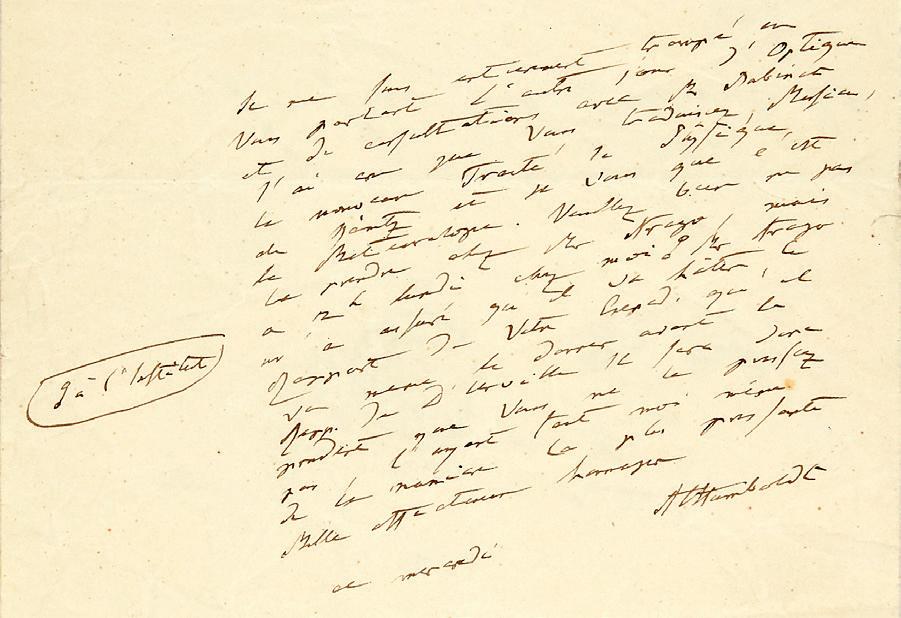 Je me suis entierement trompé, en
Vous parlant l'autre jour d'Optique
et de consultations avec Mr Babinet
j'ai cru que Vous traduisez, Monsieur,
le nouveau Traité de Physique
de Kämtz et je vois que c'est
la Météorologie. Veuillez bien ne pas
la prendre chez Mr Arago, mais
a 12 h lundi chez moi @ Mr Arago
m'a assuré qu'il va hâter le
Rapport de Votre Exped. qu'il
va meme le donner avant le
Rapp. de D'Urville. Il sera donc
prudent que Vous ne le pressiez
pas, l'ayant fait moi même
de la maniere la plus pressante
Mille affectueux hommages
AlHumboldt
ce mercredi
@ à l'Institut